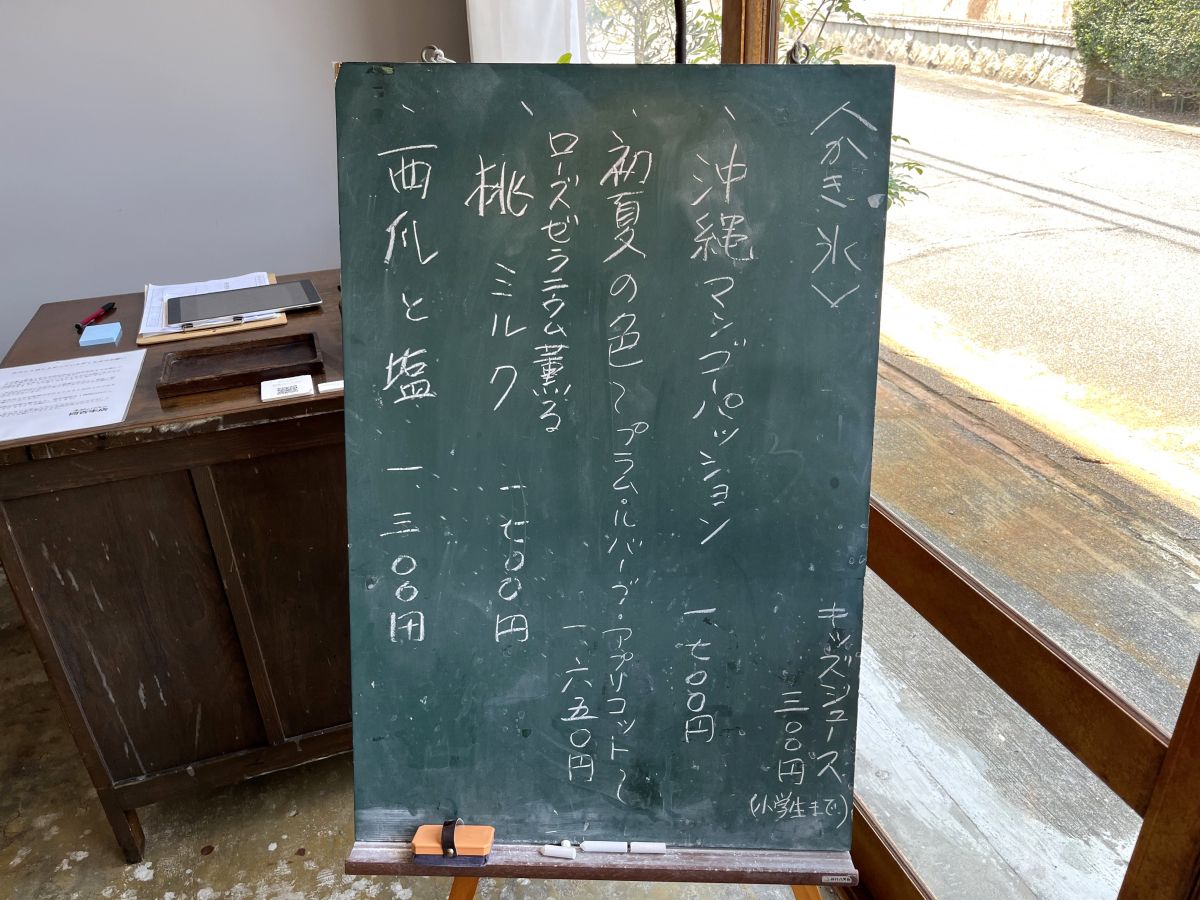 〈かき氷〉
キッズジュース
三〇〇円
(小学生まで)
、沖縄マンゴーパッション 一七〇〇円
、初夏の色〜プラム・ルバーブ・アプリコット〜
ローズゼラニウム薫る 一、六五〇円
、桃ミルク 一、七〇〇円
、西瓜と塩 一、三〇〇円